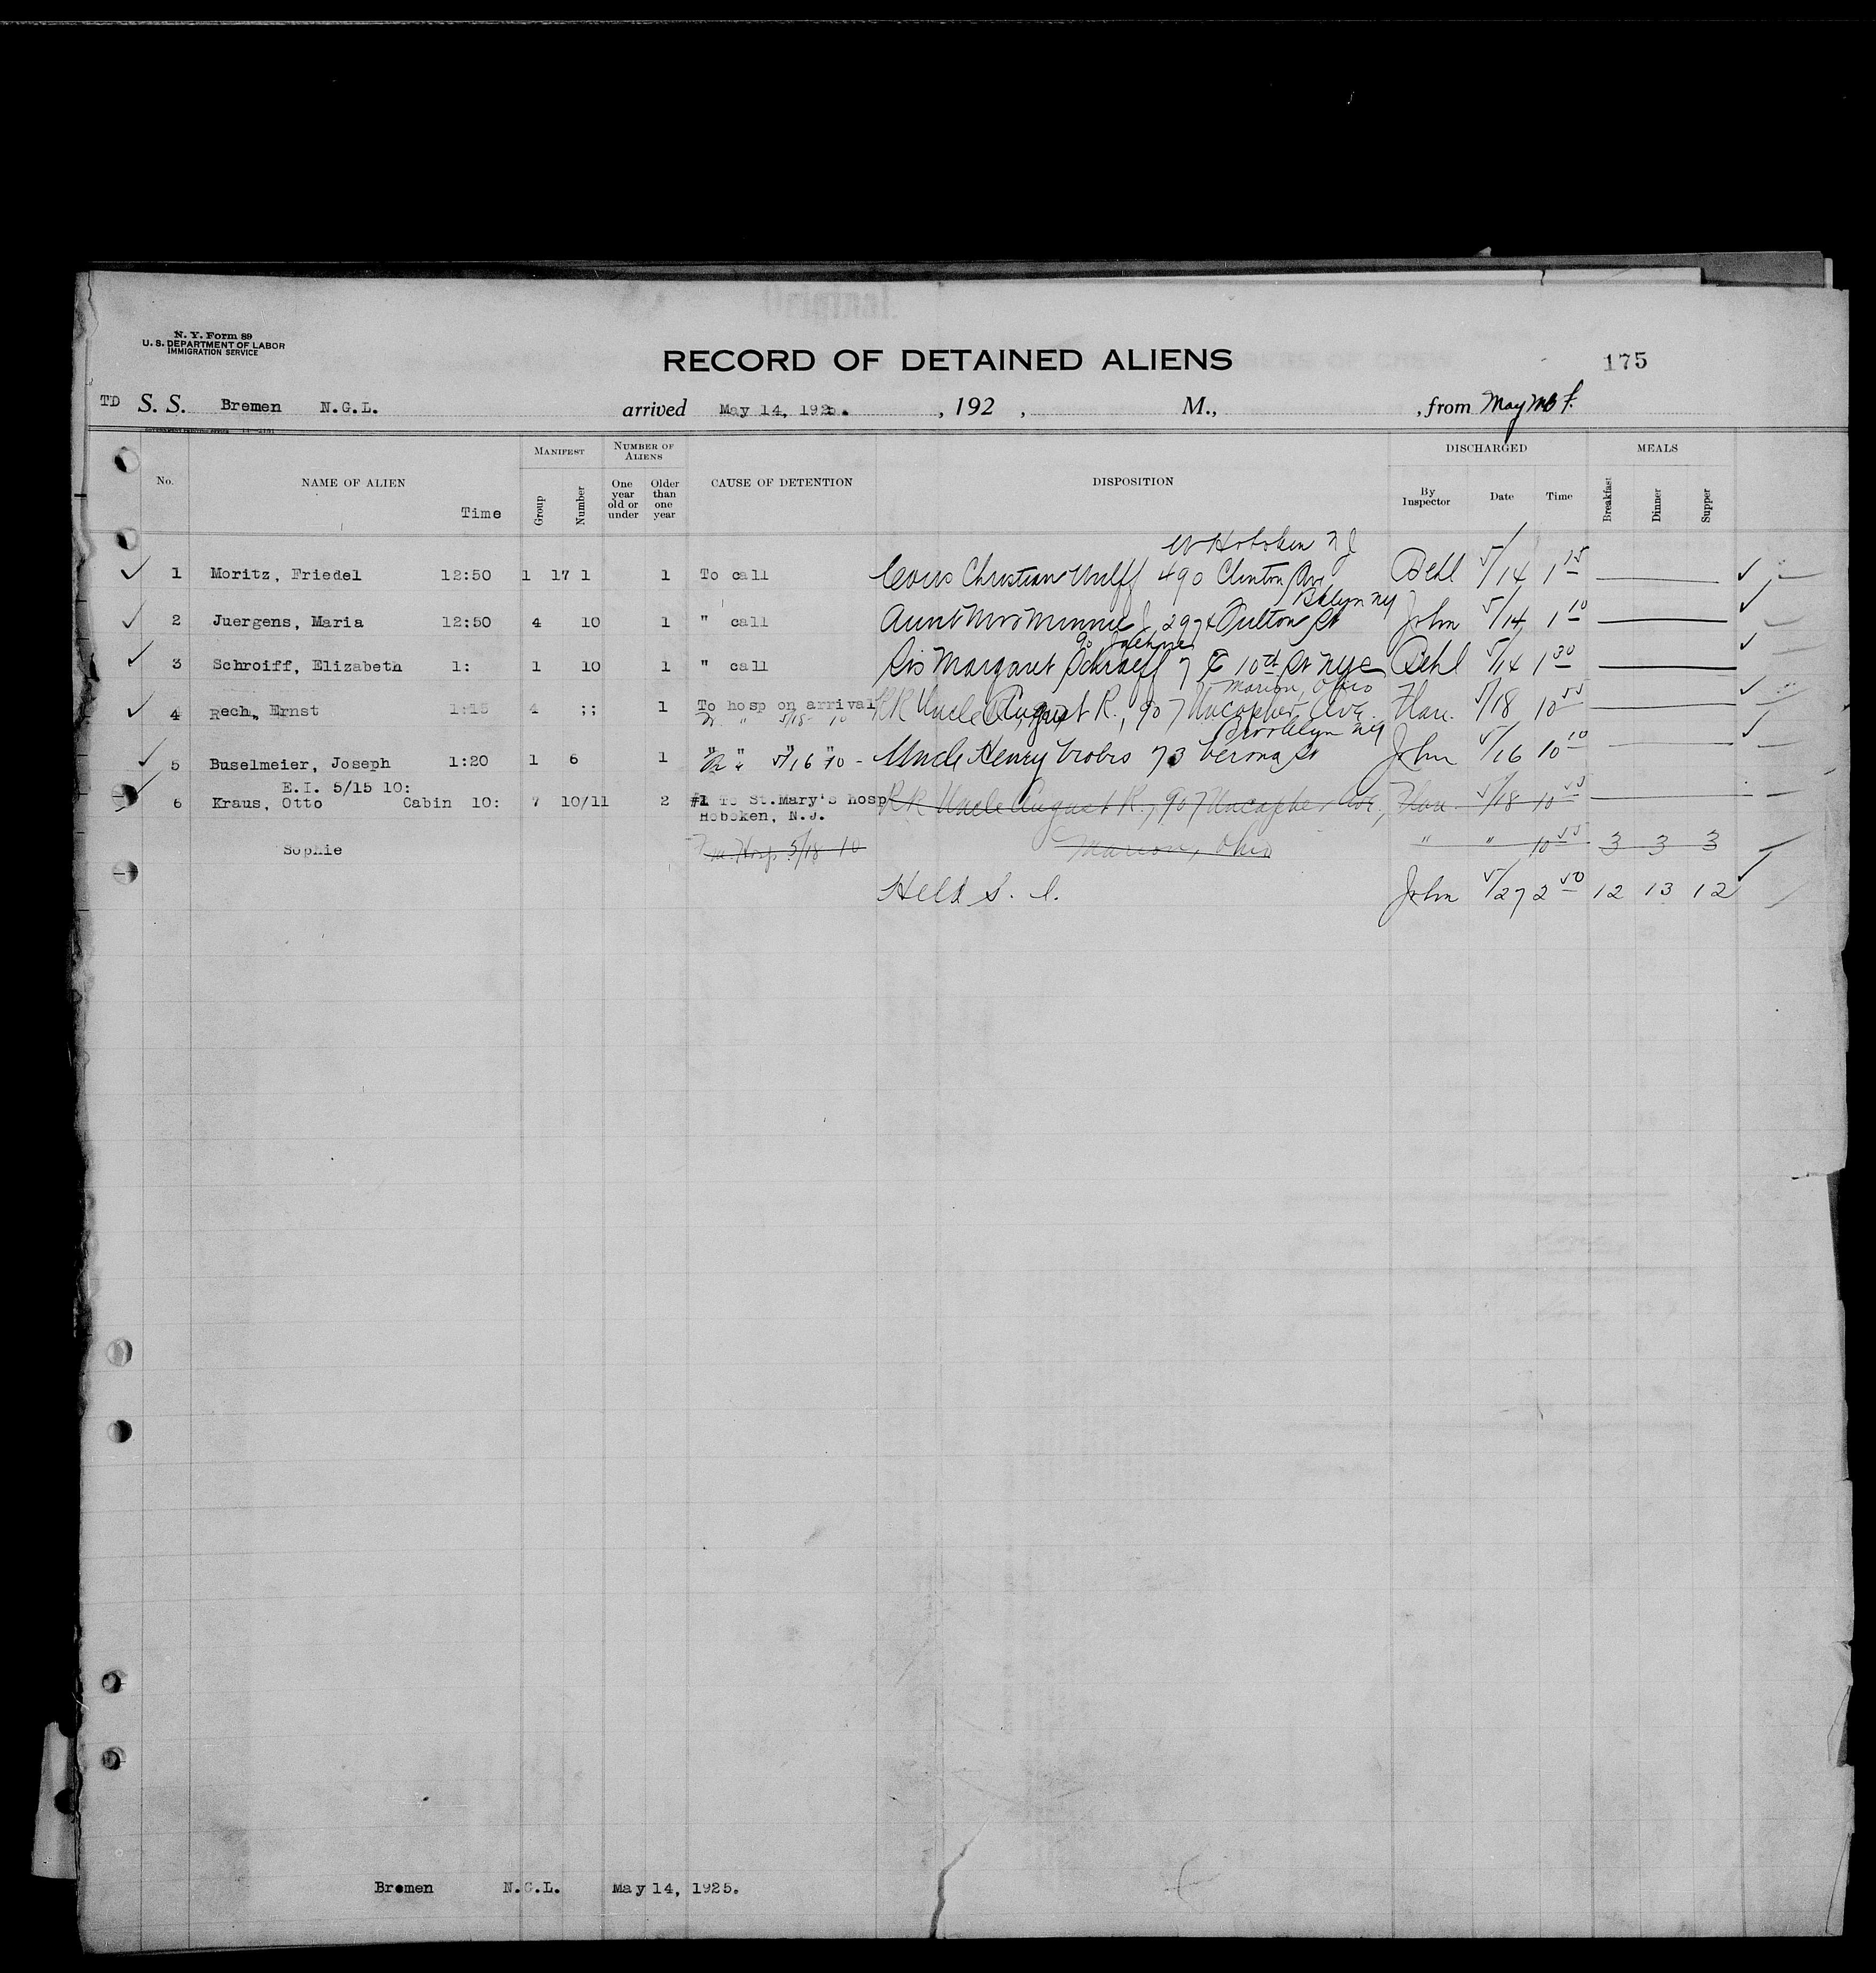 Original.
N. Y. Form 89
U. S. DEPARTMENT OF LABOR
IMMIGRATION SERVICE
RECORD OF DETAINED ALIENS
175
TD S. S. Bremen N.G.L. arrived May 14, 1925. , 192 , M., , from
No. NAME OF ALIEN Time MANIFEST Group Number NUMBER OF ALIENS One year old or under Older than one year CAUSE OF DETENTION DISPOSITION DISCHARGED By Inspector Date Time MEALS Breakfast Dinner Supper
W Hoboken NJ
1 Moritz, Friedel 12:50 1 17 1 1 To call Cous Christian Wulff 490 Clinton Ave Behl 5/14 1 15
Bklyn NY
2 Juergens, Maria 12:50 4 10 1 " call Aunt Mrs Minnie J 2974 Fulton St John 5/14 1 10
3 Schroiff, Elizabeth 1: 1 10 1 " call Sis Margaret Schroeff 7 E 10th St NYC Behl 5/14 1 30
Marion, Ohio
4 Rech, Ernst 1:15 4 ;; 1 To hosp on arrival RR Uncle August R., 907 Uncapher Ave. 5/18 10 55
" 5/18 10
Brooklyn NY
5 Buselmeier, Joseph 1:20 1 6 1 " " " " Uncle Henry 73 Verona St John 5/16 10 10
" 5/16 10 -
E.I. 5/15 10:
6 Kraus, Otto Cabin 10: 7 10/11 2 #1 To St.Mary's hosp RR Uncle August R., 907 Uncapher Ave, 5/18 10 55
Hoboken, N.J.
Sophie Hosp 5/18 10 Marion, Ohio " " 10 55 3 3 3
Held S. I. John 5/27 2 50 12 13 12
Bremen N.G.L. May 14, 1925.